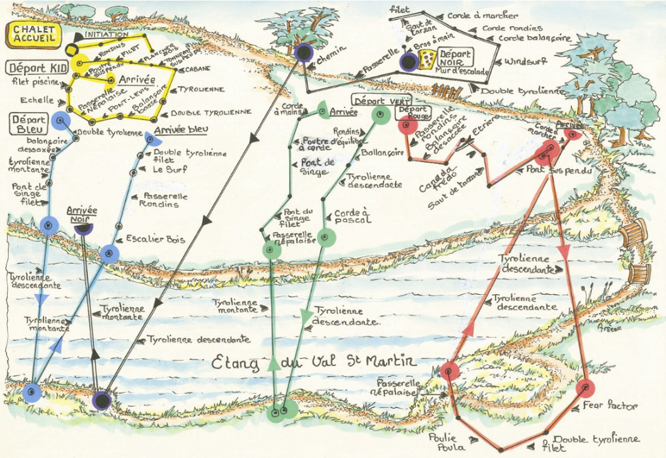 CHALET
ACCUEIL
INITIATION
RONDINS
FILET
Départ KID
Arrivée
CABANE
filet piscine
TYROLIENNE
Echelle
PASSERELLE
NÉPALAISE
PONT-LEVIS
BALANÇOIRE
DOUBLE TYROLIENNE
Départ
Bleu
Double tyrolienne
Arrivée bleu
balançoire
désaxée
Double tyrolienne
filet
Le Surf
tyrolienne
montante
Pont de
Singe
filet
Passerelle
Rondins
Arrivée
Noir
Escalier Bois
Tyrolienne
descendante
Tyrolienne
montante
Chemin
filet
Corde à marcher
Saut de
Tarzan
Corde rondins
Bras à main
Corde balançoire
Départ
NOIR
Passerelle
Mur d'escalade
Windsurf
Double tyrolienne
Corde
à mains
Arrivée
Départ VERT
Rondins
Poutre d'équilibre
à corde
Balançoire
Pont de
Singe
Tyrolienne
descendante
Pont du
singe
filet
Corde à
pascal
Passerelle
Népalaise
Départ
Rouge
Passerelle
Rondins
Balançoire
Désaxée
Etrier
Saut de tarzan
Corde à
marcher
Arrivée
Pont Suspendu
Tyrolienne
descendante
Tyrolienne
descendante
Tyrolienne
montante
Tyrolienne
descendante
Tyrolienne descendante
Etang du Val St Martin
Passerelle
népalaise
Poulie
Poula
Fear factor
Double tyrolienne
filet